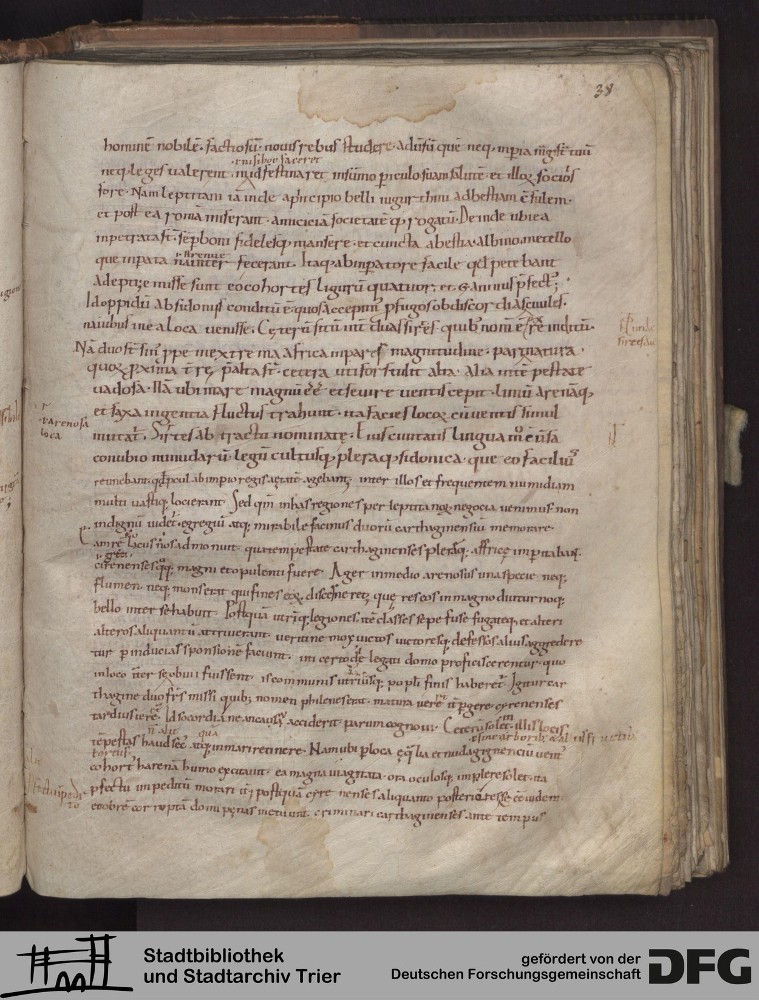 38
hominē nobilē. factiosū. nouis rebus studere. aduersū quē neq. imperia magistratuū
neq. leges ualerent. ni id festinaret in sūmo periculo suam salutē. et illorum socios
fore. Nam leptitani iā inde a principio belli iugurthini ad bestiam consulem.
et postea romā miserant. amiciciā societatēq. rogatū. Deinde ubi ea
inpetrata sunt. semper boni fidelesq. mansere. et cuncta a bestia. albino. metello
que imperata nauiter fecerant. Itaq. ab imperatore facile que petebant
adepti. emisse sunt eo cohortes ligurū quatuor. et c. annius praefectus.
Id oppidū ab sidoniis conditū est. quos accepimus profugos ob discordias ciuiles.
nauibus in ea loca uenisse. Ceterū sitū inter duas sirtes. quibus nomen ex re inditū.
Nā duo sunt sinus prope in extrema africa impares magnitudine. pari natura.
quorum proxima terre. praealta sunt. cetera uti fors tulit alta. alia in tempestate
uadosa. Nā ubi mare magnū esse et seuire uentis cepit. limū arenāq.
et saxa ingentia fluctus trahunt. ita facies locorum cū uentis simul
mutatur. Sirtes ab tractu nominate. Eius ciuitatis lingua modo conuersa
conubio numidarū. legū cultusq. pleraq. sidonica. que eo facilius
retinebant. quod procul ab imperio regis aetatē agebant. inter illos et frequentem numidiam
multi uastiq. loci erant. Sed quoniam in has regiones per leptitanorum negocia uenimus. non
indignū uidetur. egregiū atq. mirabile facinus duorū carthaginensiū memorare.
Eam rem locus nos admonuit. qua tempestate carthaginenses pleraq. affrice imperitabant.
cirenenses quoq. magni et opulenti fuere. Ager in medio arenosus una specie. neq.
flumen. neq. mons erat qui fines eorum discerneret. que res eos in magno diuturnoq.
bello inter se habuit. Postquā utrimq. legiones. item classes sepe fuse fugateq. et alteri
alteros aliquantū attriuerant. ueriti ne mox uictos uictoresq. defessos alius aggrederetur
per inducias sponsionē faciunt. uti certo die legati domo proficiscerentur. quo
in loco inter se obuii fuissent. is communis utriusq. populi finis haberetur. Igitur carthagine
duo fratres missi quibus nomen philenes erat. maturauere iter pergere. cyrenenses
tardius iere. Id socordiā ne an casu acciderit parum cognoui. Ceterū solet in illis locis
tempestas haud secus atq. in mari retinere. Nam ubi per loca equalia et nuda gignentiū uentus
cohortus harenā humo excitauit. ea magna ui agitata. ora oculosq. implere solet. ita
prospectu impeditū morari iter. postquā cyrenenses aliquanto posteriores se esse uident.
et ob rem corruptā domi penas metuunt. criminari carthaginenses ante tempus
Stadtbibliothek
und Stadtarchiv Trier
gefördert von der
Deutschen Forschungsgemeinschaft
DFG